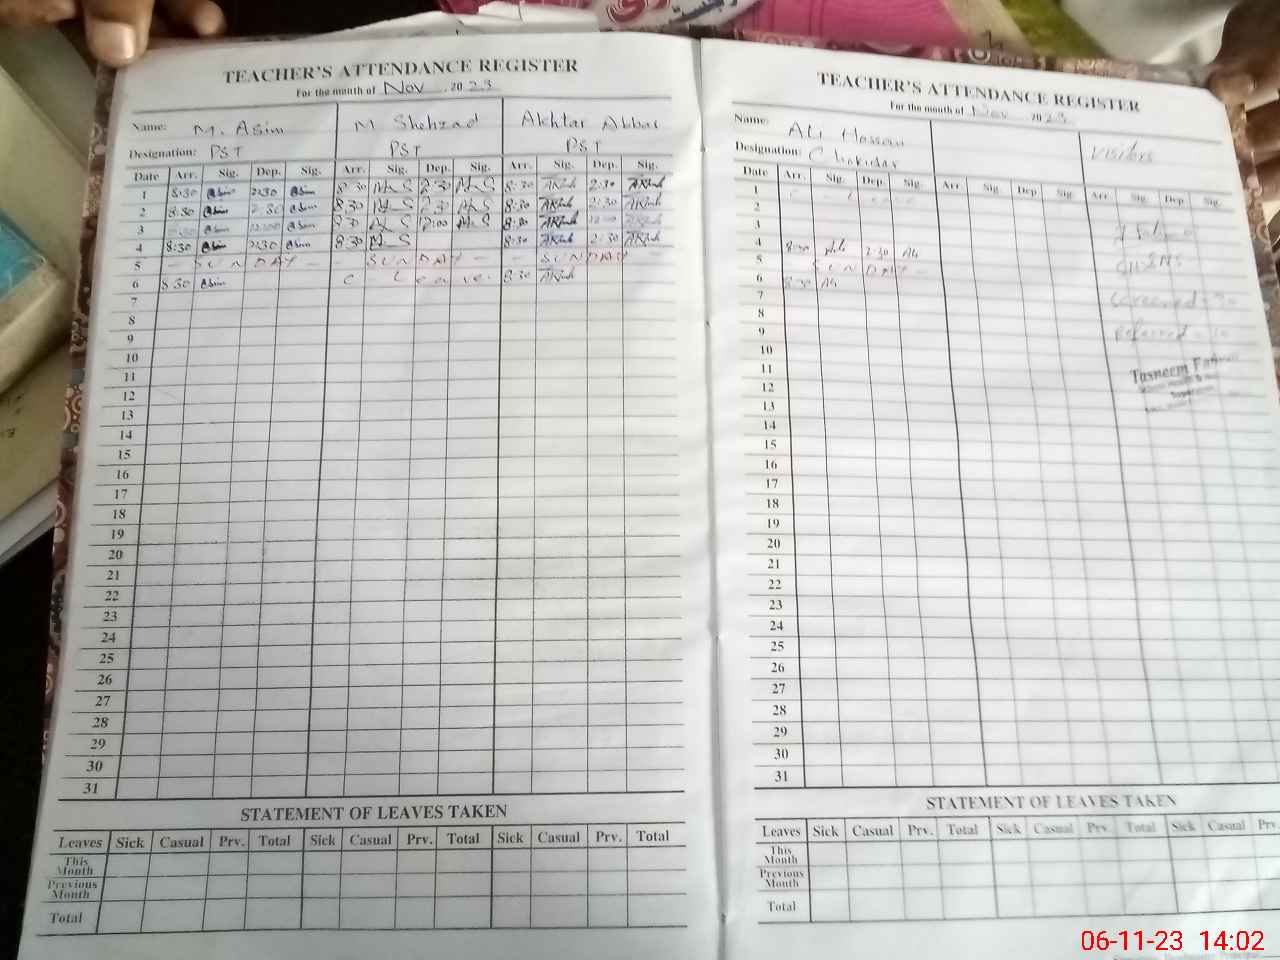 TEACHER'S ATTENDANCE REGISTER
For the month of Nov 2023
Name: M. Asim M Shehzad Akhtar Abbas
Designation: PST PST PST
Date Arr. Sig. Dep. Sig. Arr. Sig. Dep. Sig. Arr. Sig. Dep. Sig.
1 8:30 Asim 2:30 Asim 8:30 M S 2:30 M S 8:30 2:30
2 8:30 Asim 2:30 Asim 8:30 M S 2:30 M S 8:30 2:30
3 8:30 Asim 12:00 Asim 8:30 M S 12:00 M S 8:30 12:00
4 8:30 Asim 2:30 Asim 8:30 M S 8:30 2:30
5 - SUNDAY - SUNDAY - - SUNDAY -
6 8:30 Asim C Leave 8:30
7
8
9
10
11
12
13
14
15
16
17
18
19
20
21
22
23
24
25
26
27
28
29
30
31
STATEMENT OF LEAVES TAKEN
Leaves Sick Casual Prv. Total Sick Casual Prv. Total Sick Casual Prv. Total
This Month
Previous Month
Total
TEACHER'S ATTENDANCE REGISTER
For the month of Nov 2023
Name: Ali Hassan
Designation: Chokidar Visitors
Date Arr. Sig. Dep. Sig. Arr. Sig Dep Sig. Arr Sig. Dep Sig.
1
2
3
4 8:30 Ali 2:30 Ali
5 SUNDAY -
6 8:30 Ali
7 Screened - 30
8
9 Referred - 10
10
11 Tasneem
12
13
14
15
16
17
18
19
20
21
22
23
24
25
26
27
28
29
30
31
STATEMENT OF LEAVES TAKEN
Leaves Sick Casual Prv. Total Sick Casual Prv. Total Sick Casual Prv.
This Month
Previous Month
Total
06-11-23 14:02